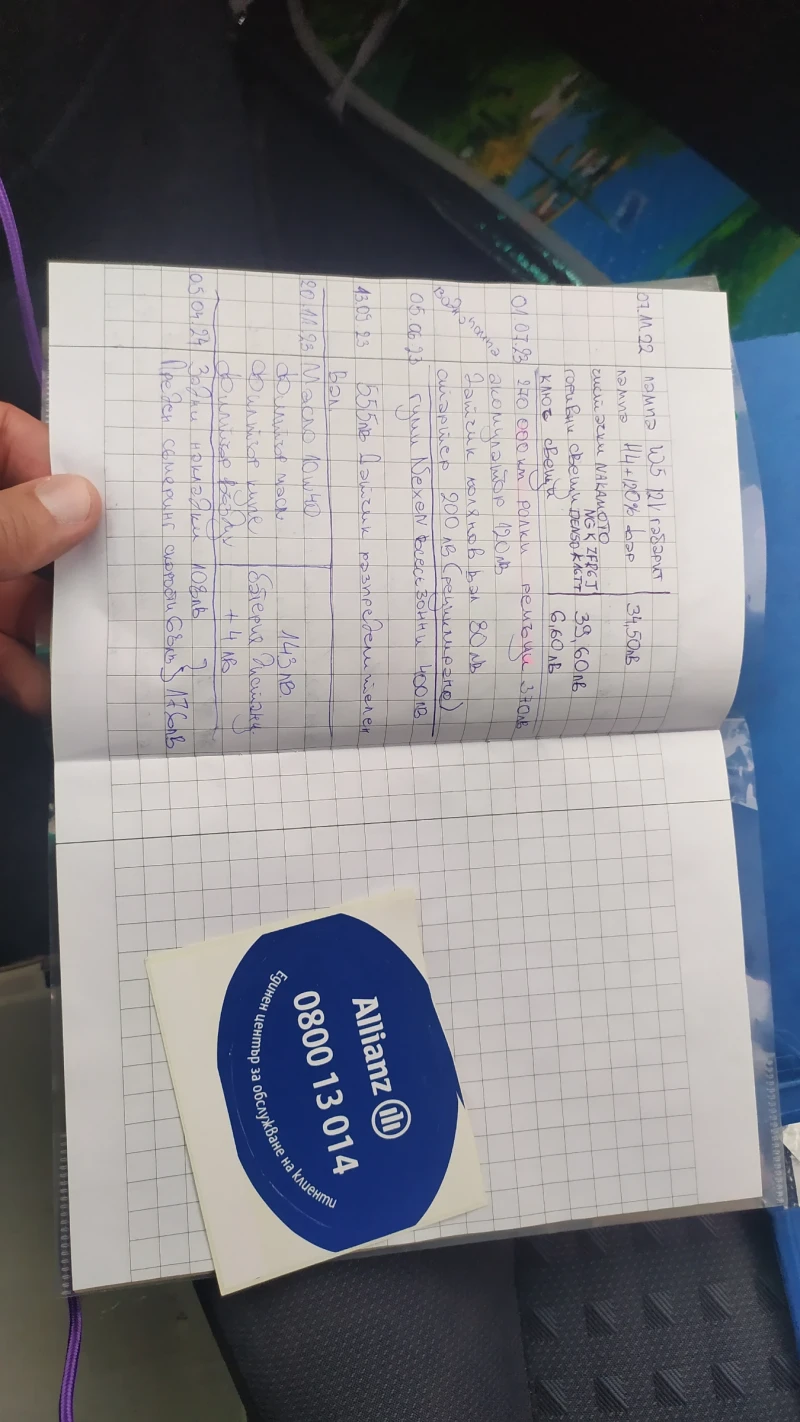 07.11.22 лампа W5 12V габарит
лампа H4 +120% бар 34,50лв
чистачки NAKAMOTO
NGK ZFR6J
горивни свещи DENSO K16TT 39,60лв
ключ свещи 6,60лв
01.07.23 270 000 км ролки ремъци 370лв
водна помпа
акумулатор 120лв
датчик колянов вал 80лв
стартер 200лв (рециклирано)
05.06.23 гуми Nexen всесезонни 400лв
13.09.23 555лв Датчик разпределителен
вал
20.11.23 Масло 10w40
Филтър масл 143лв.
Филтър купе батерия дистанц
Филтър въздух + 4лв
05.04.24 Задни накладки 108лв
Преден семеринг скорости 68лв } 176лв
Allianz
0800 13 014
Единен център за обслужване на клиенти